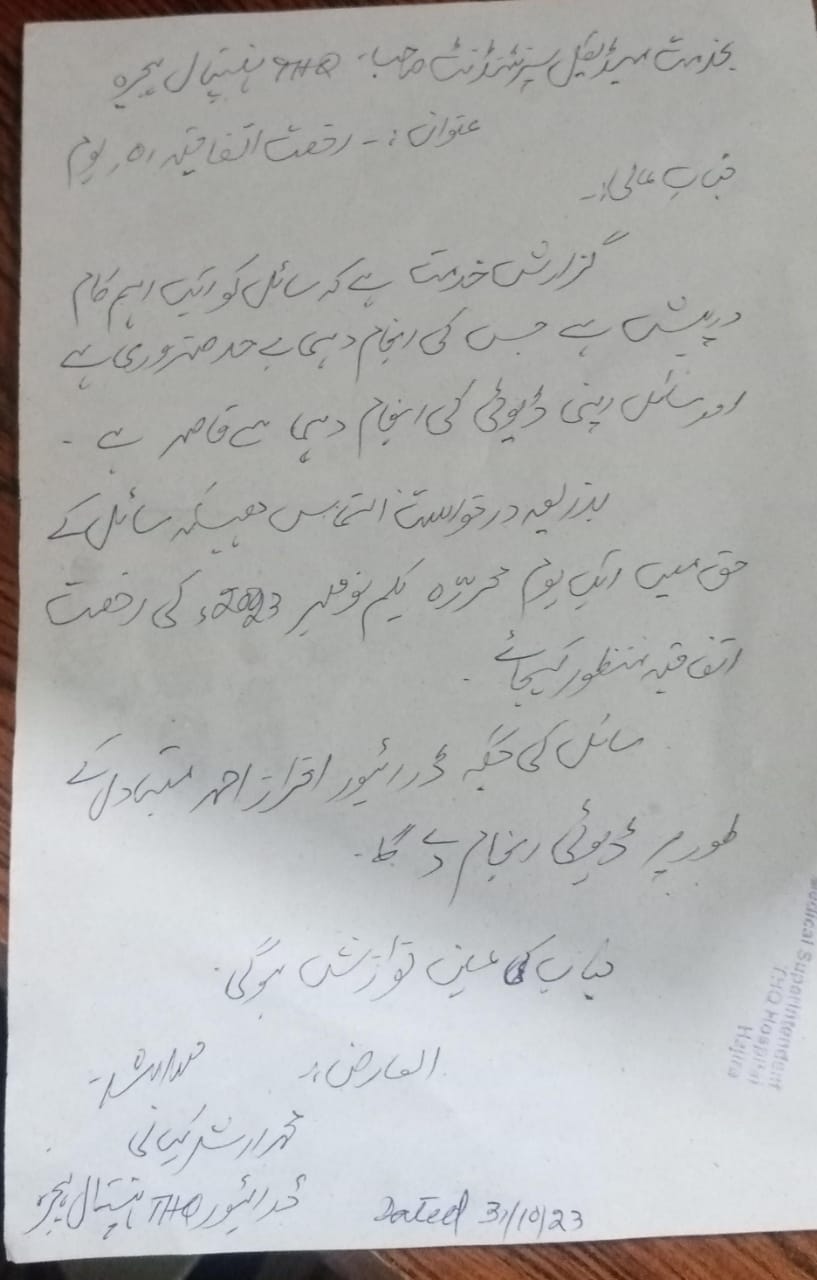 بخدمت میڈیکل سپرنٹنڈنٹ صاحب THQ ہسپتال ہجیرہ
عنوان :۔ رخصت اتفاقیہ 01 یوم
جناب عالی!۔
گزارش خدمت ہے کہ سائل کو ایک اہم کام
درپیش ہے جس کی انجام دہی بے حد ضروری ہے
اور سائل اپنی ڈیوٹی کی انجام دہی سے قاصر ہے ۔
بذریعہ درخواست التماس ہیکہ سائل کے
حق میں ایک یوم محررہ یکم نومبر 2023ء کی رخصت
اتفاقیہ منظور کیجائے ۔
سائل کی جگہ ڈرائیور اقرار احمد متبادل کے
طور پر ڈیوٹی انجام دے گا۔
جناب کی عین نوازش ہوگی۔
العارض :۔
محمد ارشد کیانی
ڈرائیور THQ ہسپتال ہجیرہ
Dated 31/10/23
Medical Superintendent
THQ Hospital
Hajira